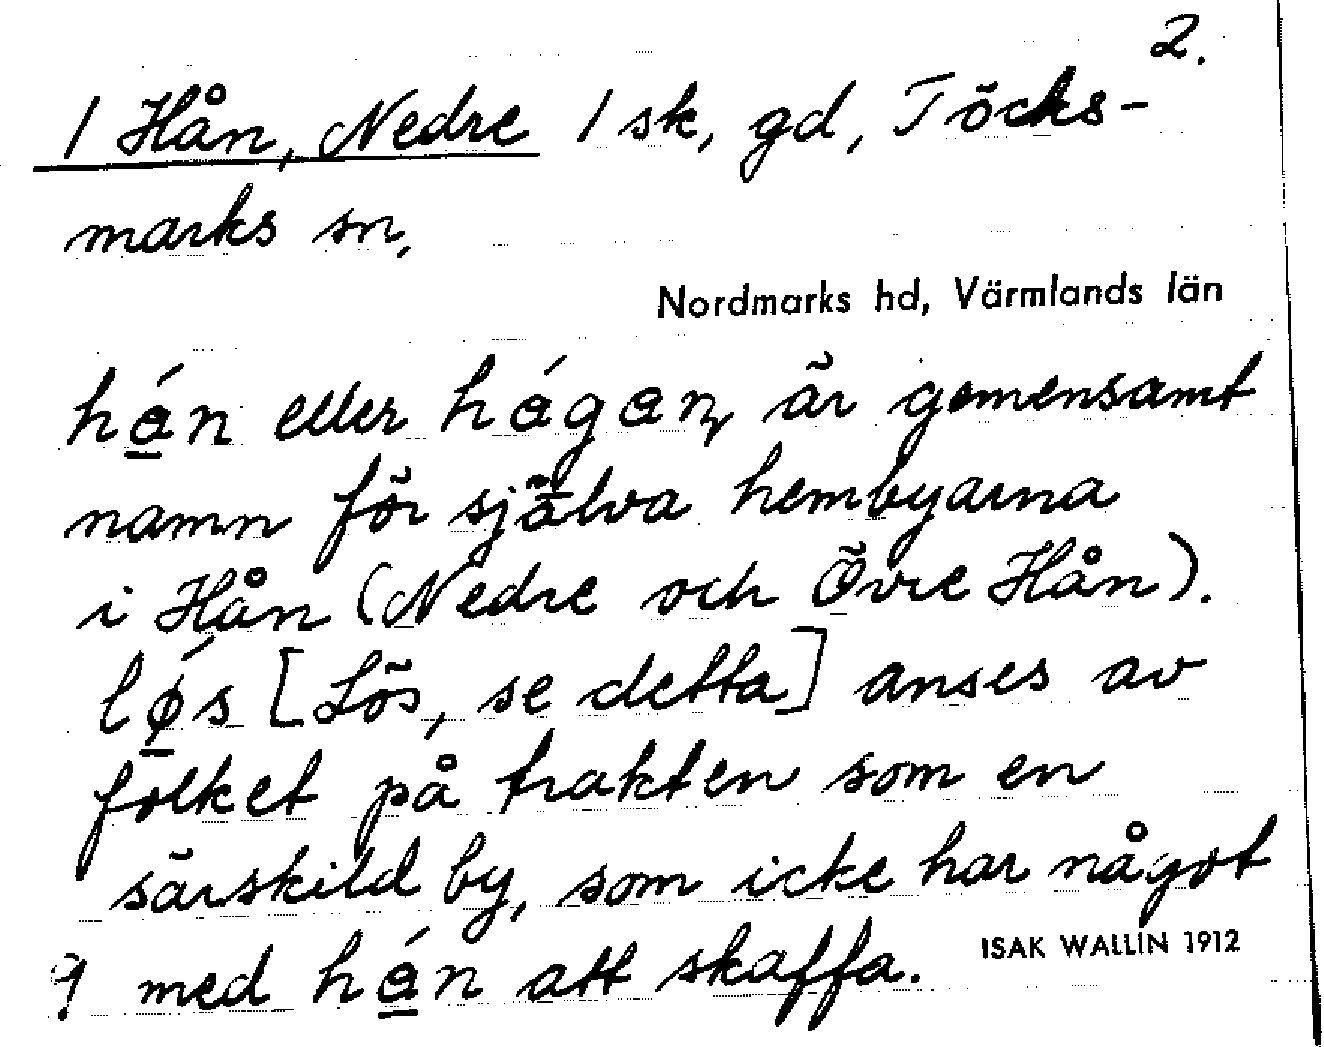 2.
/ Hån, Nedre / sk, gd, Töcks-
marks sn,
Nordmarks hd, Värmlands län
hán eller hágan, är gemensamt
namn för själva hembyarna
i Hån (Nedre och Övre Hån).
lǿs [Lös, se detta] anses av
folket på trakten som en
särskild by, som icke har något
med hán att skaffa.
ISAK WALLIN 1912